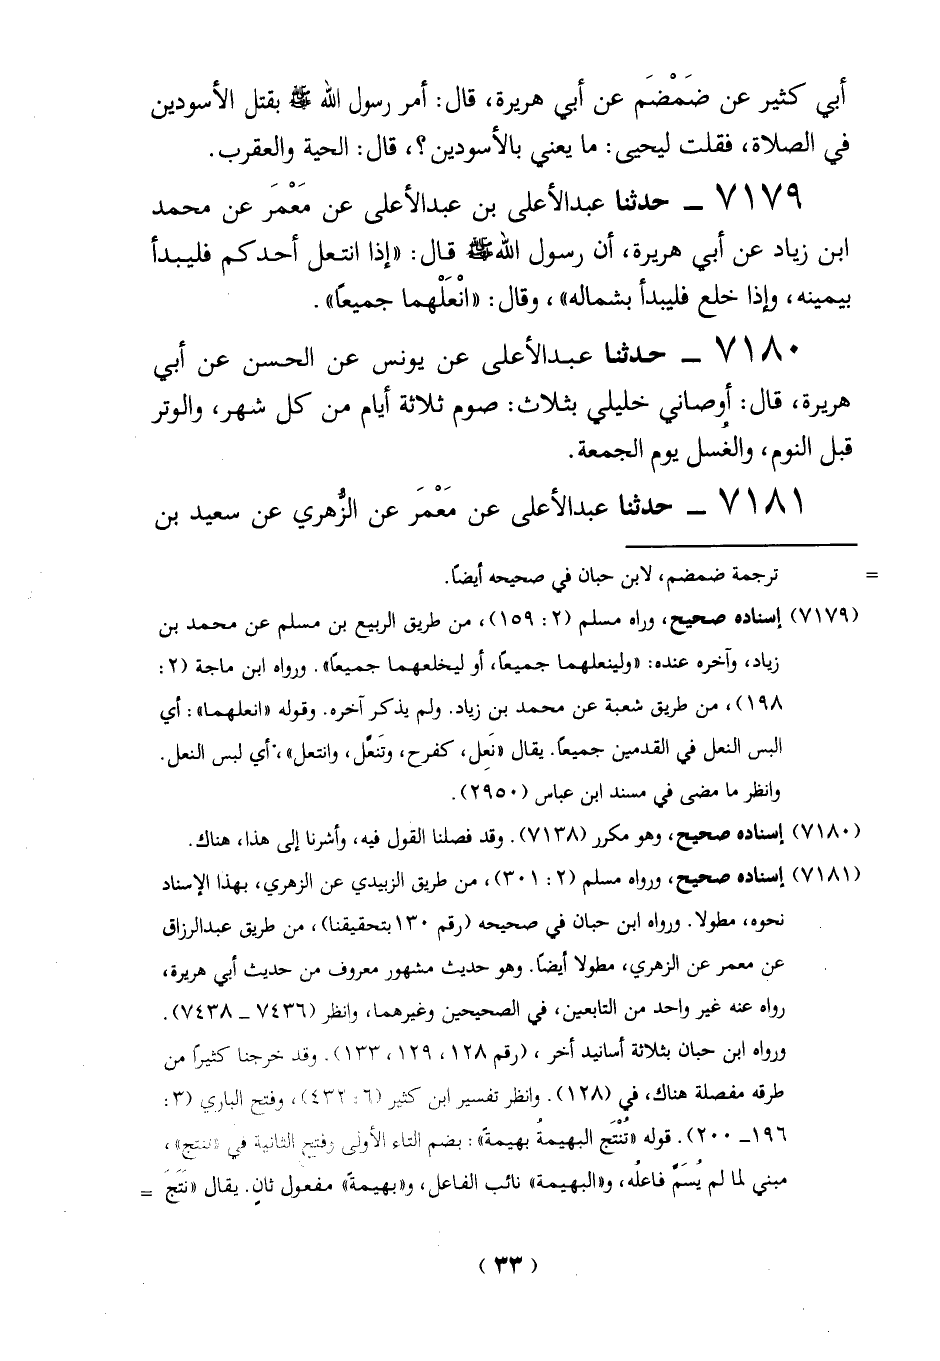 أبي كثير عن ضَمْضَم عن أبي هريرة، قال: أمر رسول الله ﷺ بقتل الأسودين
في الصلاة، فقلت ليحيى: ما يعني بالأسودين؟، قال: الحية والعقرب.
٧١٧٩ ــ حدثنا عبدالأعلى بن عبدالأعلى عن مَعْمَر عن محمد
ابن زياد عن أبي هريرة، أن رسول الله ﷺ قال: «إذا انتعل أحدكم فليبدأ
بيمينه، وإذا خلع فليبدأ بشماله»، وقال: «انْعَلْهما جميعاً».
٧١٨٠ ــ حدثنا عبدالأعلى عن يونس عن الحسن عن أبي
هريرة، قال: أوصاني خليلي بثلاث: صوم ثلاثة أيام من كل شهر، والوتر
قبل النوم، والغُسل يوم الجمعة.
٧١٨١ ــ حدثنا عبدالأعلى عن مَعْمَر عن الزُّهري عن سعيد بن
= ترجمة ضمضم، لابن حبان في صحيحه أيضاً.
(٧١٧٩) إسناده صحيح، وراه مسلم (٢: ١٥٩)، من طريق الربيع بن مسلم عن محمد بن
زياد، وآخره عنده: «ولينعلهما جميعاً، أو ليخلعهما جميعاً». ورواه ابن ماجة (٢:
١٩٨)، من طريق شعبة عن محمد بن زياد. ولم يذكر آخره. وقوله «انعلهما»: أي
البس النعل في القدمين جميعاً. يقال «نَعِل، كفرح، وتَنَعَّل، وانتعل»، أي لبس النعل.
وانظر ما مضى في مسند ابن عباس (٢٩٥٠).
(٧١٨٠) إسناده صحيح، وهو مكرر (٧١٣٨). وقد فصلنا القول فيه، وأشرنا إلى هذا، هناك.
(٧١٨١) إسناده صحيح، ورواه مسلم (٢: ٣٠١)، من طريق الزبيدي عن الزهري، بهذا الإسناد
نحوه، مطولا. ورواه ابن حبان في صحيحه (رقم ١٣٠ بتحقيقنا)، من طريق عبدالرزاق
عن معمر عن الزهري، مطولا أيضاً. وهو حديث مشهور معروف من حديث أبي هريرة،
رواه عنه غير واحد من التابعين، في الصحيحين وغيرهما، وانظر (٧٤٣٦ ــ ٧٤٣٨).
ورواه ابن حبان بثلاثة أسانيد أخر، (رقم ١٢٨، ١٢٩، ١٣٣). وقد خرجنا كثيراً من
طرقه مفصلة هناك، في (١٢٨). وانظر تفسير ابن كثير (٦: ٤٣٢)، وفتح الباري (٣:
١٩٦ــ ٢٠٠). قوله «تُنْتَج البهيمةُ بهيمةً»: بضم التاء الأولى وفتح الثانية في «تنتج»،
مبني لما لم يُسَمَّ فاعلُه، و«البهيمة» نائب الفاعل، و«بهيمةً» مفعول ثانٍ. يقال «نَتَجَ =
(٣٣)